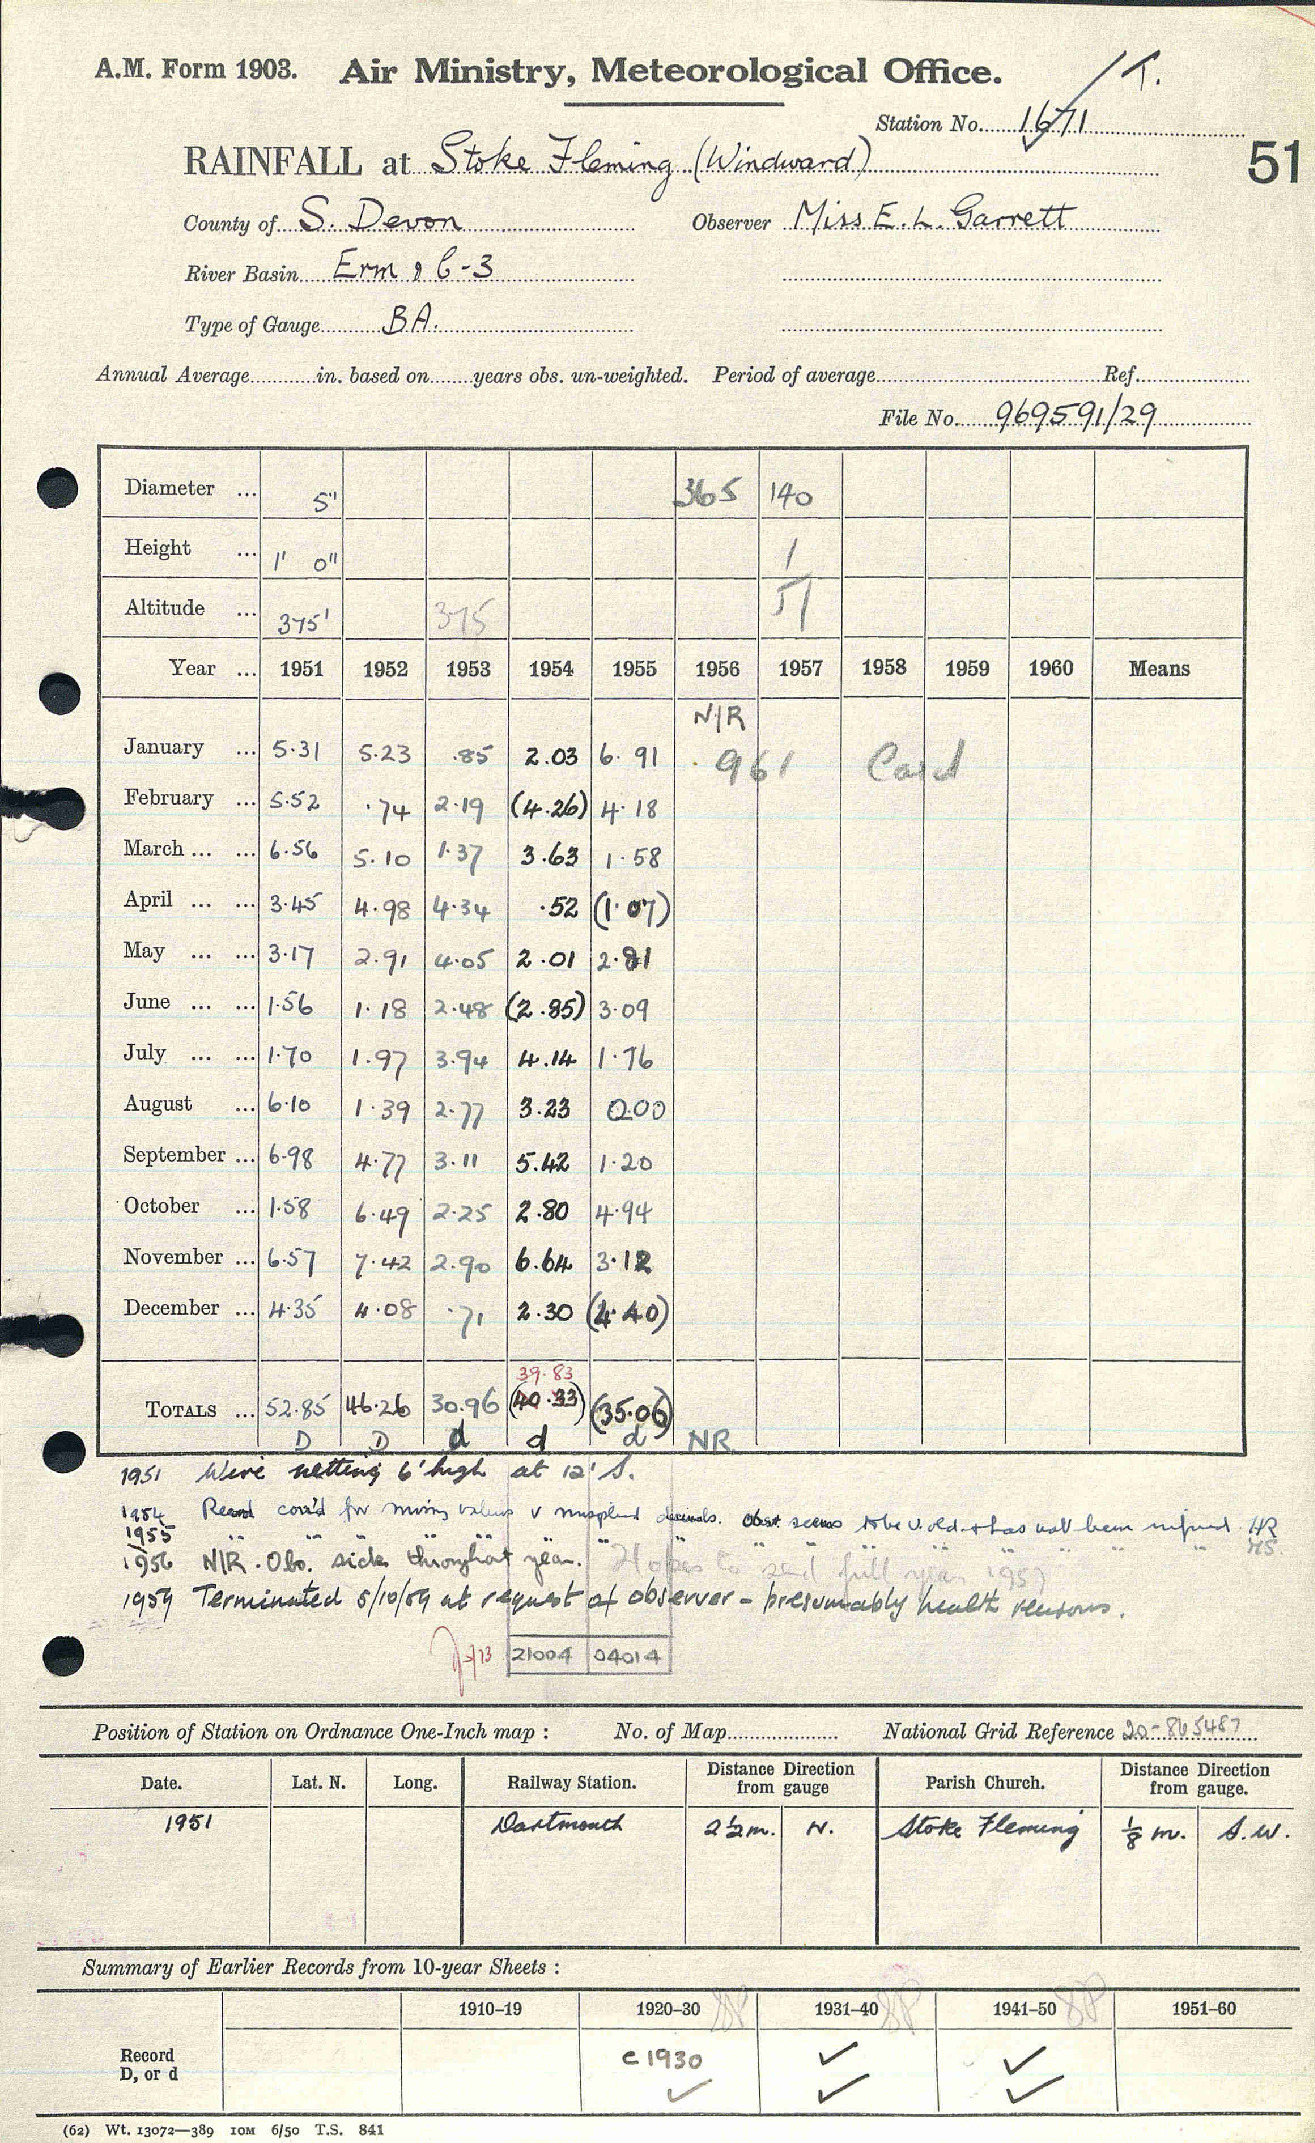 A.M. Form 1903. Air Ministry, Meteorological Office. T.
Station No. 1671
RAINFALL at Stoke Fleming (Windward) 51
County of S. Devon Observer Miss E. L. Garrett
River Basin Erm & C-3
Type of Gauge BA.
Annual Average in. based on years obs. un-weighted. Period of average Ref.
File No. 969591/29
Diameter ... 5" 365 140
Height ... 1' 0" 1
Altitude ... 375' 375 51
Year ... 1951 1952 1953 1954 1955 1956 1957 1958 1959 1960 Means
N/R
January ... 5.31 5.23 .85 2.03 6.91 961 Card
February ... 5.52 .74 2.19 (4.26) 4.18
March ... ... 6.56 5.10 1.37 3.63 1.58
April ... ... 3.45 4.98 4.34 .52 (1.07)
May ... ... 3.17 2.91 4.05 2.01 2.81
June ... ... 1.56 1.18 2.48 (2.85) 3.09
July ... ... 1.70 1.97 3.94 4.14 1.76
August ... 6.10 1.39 2.77 3.23 0.00
September ... 6.98 4.77 3.11 5.42 1.20
October ... 1.58 6.49 2.25 2.80 4.94
November ... 6.57 7.42 2.90 6.64 3.12
December ... 4.35 4.08 .71 2.30 (4.40)
39.83
TOTALS ... 52.85 46.26 30.96 (40.33) (35.06)
D D d d d NR
1951 Wire netting 6' high at 12' S.
1954 Record for missing values v misplaced decimals. Obsr. seems to be v. old & has not been HR
1955 " " " " " " " " " " HS.
1956 N/R. Obs. sick throughout year. Hopes to send full year 1957
1959 Terminated 5/10/59 at request of observer - presumably health reasons.
21004 04014
Position of Station on Ordnance One-Inch map : No. of Map National Grid Reference 20-865487
Date. Lat. N. Long. Railway Station. Distance Direction from gauge Parish Church. Distance Direction from gauge.
1951 Dartmouth 2½ m. N. Stoke Fleming ⅛ m. S.W.
Summary of Earlier Records from 10-year Sheets :
1910–19 1920–30 1931–40 1941–50 1951–60
Record D, or d c 1930 ✓ ✓
✓ ✓ ✓
(62) Wt. 13072—389 10M 6/50 T.S. 841